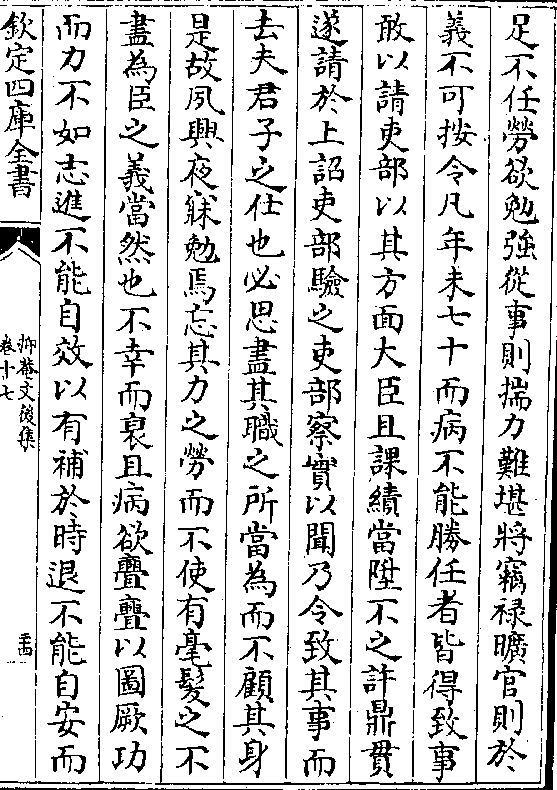 足不任勞欲勉強從事則揣力難堪將竊禄曠官則於
義不可按令凡年未七十而病不能勝任者皆得致事
敢以請吏部以其方面大臣且課績當陞不之許鼎貫
遂請於上詔吏部驗之吏部察實以聞乃令致其事而
去夫君子之仕也必思盡其職之所當為而不顧其身
是故夙興夜寐勉焉忘其力之勞而不使有毫髮之不
盡為臣之義當然也不幸而衰且病欲亹亹以圖厥功
而力不如志進不能自效以有補於時退不能自安而
欽定四庫全書
抑菴文後集
卷十七